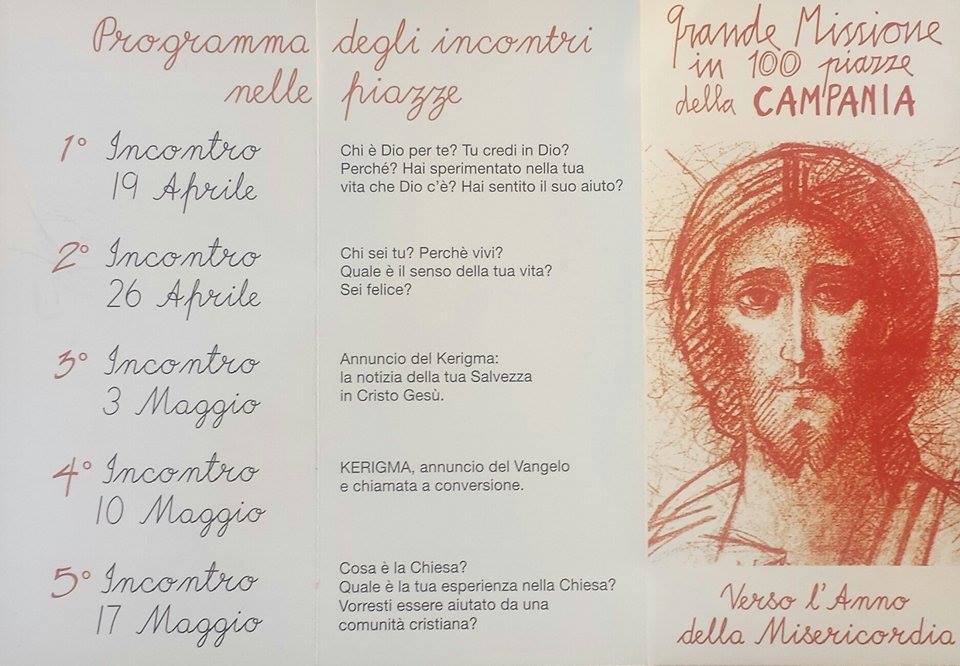 Programma degli incontri
nelle piazze
1° Incontro
19 Aprile
Chi è Dio per te? Tu credi in Dio?
Perché? Hai sperimentato nella tua
vita che Dio c'è? Hai sentito il suo aiuto?
2° Incontro
26 Aprile
Chi sei tu? Perchè vivi?
Quale è il senso della tua vita?
Sei felice?
3° Incontro
3 Maggio
Annuncio del Kerigma:
la notizia della tua Salvezza
in Cristo Gesù.
4° Incontro
10 Maggio
KERIGMA, annuncio del Vangelo
e chiamata a conversione.
5° Incontro
17 Maggio
Cosa è la Chiesa?
Quale è la tua esperienza nella Chiesa?
Vorresti essere aiutato da una
comunità cristiana?
grande Missione
in 100 piazze
della CAMPANIA
Verso l'Anno
della Misericordia